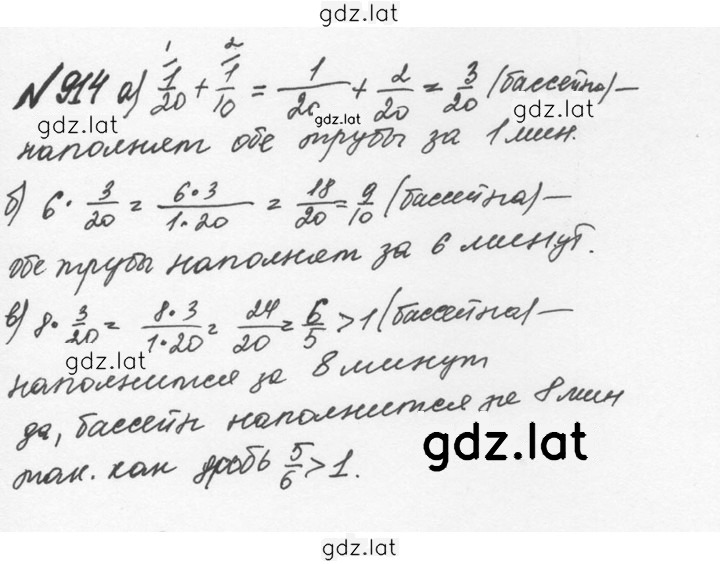 gdz.lat
№ 914 а) 1/20 + 1/10 = 1/20 + 2/20 = 3/20 (бассейна) —
gdz.lat gdz.lat gdz.lat
наполняет обе трубы за 1 мин.
б) 6 · 3/20 = 6·3/1·20 = 18/20 = 9/10 (бассейна) —
обе трубы наполняет за 6 минут.
в) 8 · 3/20 = 8·3/1·20 = 24/20 = 6/5 > 1 (бассейна) —
gdz.lat
наполнится за 8 минут
да, бассейн наполнится 8 мин
так. как дробь 5/6 > 1.
gdz.lat
gdz.lat